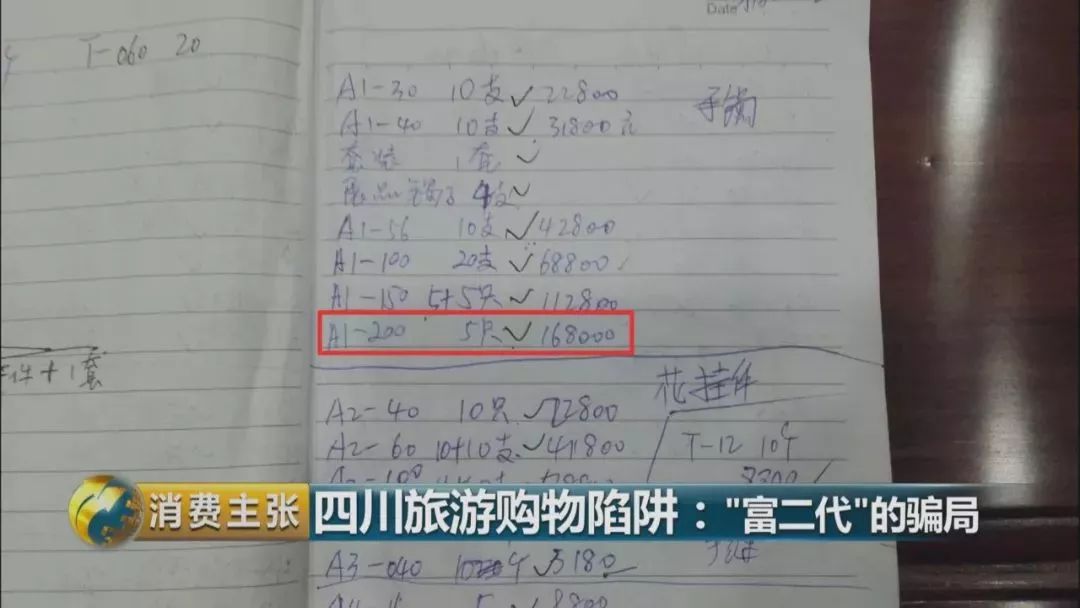 Date
T-060 20
A1-30 10支✓22800
手镯
A1-40 10支✓31800元
套装 1套✓
展品镯子 4支✓
A1-56 10支✓42800
A1-100 20支✓68800✓
A1-150 5+5只✓112800
A1-200 5只✓168000
件+1套
花挂件
A2-40 10只✓22800
A2-60 10+10支✓41800
T-12 10个
8300
消费主张
四川旅游购物陷阱："富二代"的骗局
A3-040 ✓3180
8800